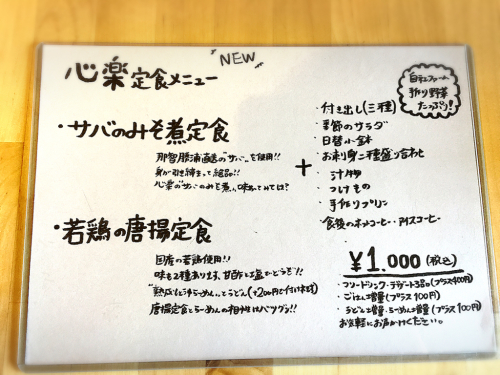 心楽定食メニュー
NEW
自社ファーム
手作り野菜
たっぷり!
・サバのみそ煮定食
那智勝浦直送の"サバ"を使用!!
身が引き締まって絶品!!
心楽の"サバのみそ煮"味わってみては?
・若鶏の唐揚定食
国産の若鶏使用!!
味も2種あります、甘酢と塩でどうぞ!!
唐揚定食とらーめんの相性はバツグン!!
+
・付き出し(三種)
・季節のサラダ
・日替小鉢
・お刺身二種盛り合わせ
・汁物
・つけもの
・手作りプリン
・食後のホットコーヒー・アイスコーヒー
¥1.000(税込)
・フリードリンク・デザート3品(プラス400円)
・ごはん増量(プラス100円)
・うどん増量・らーめん増量(プラス100円)
お気軽にお声かけください。